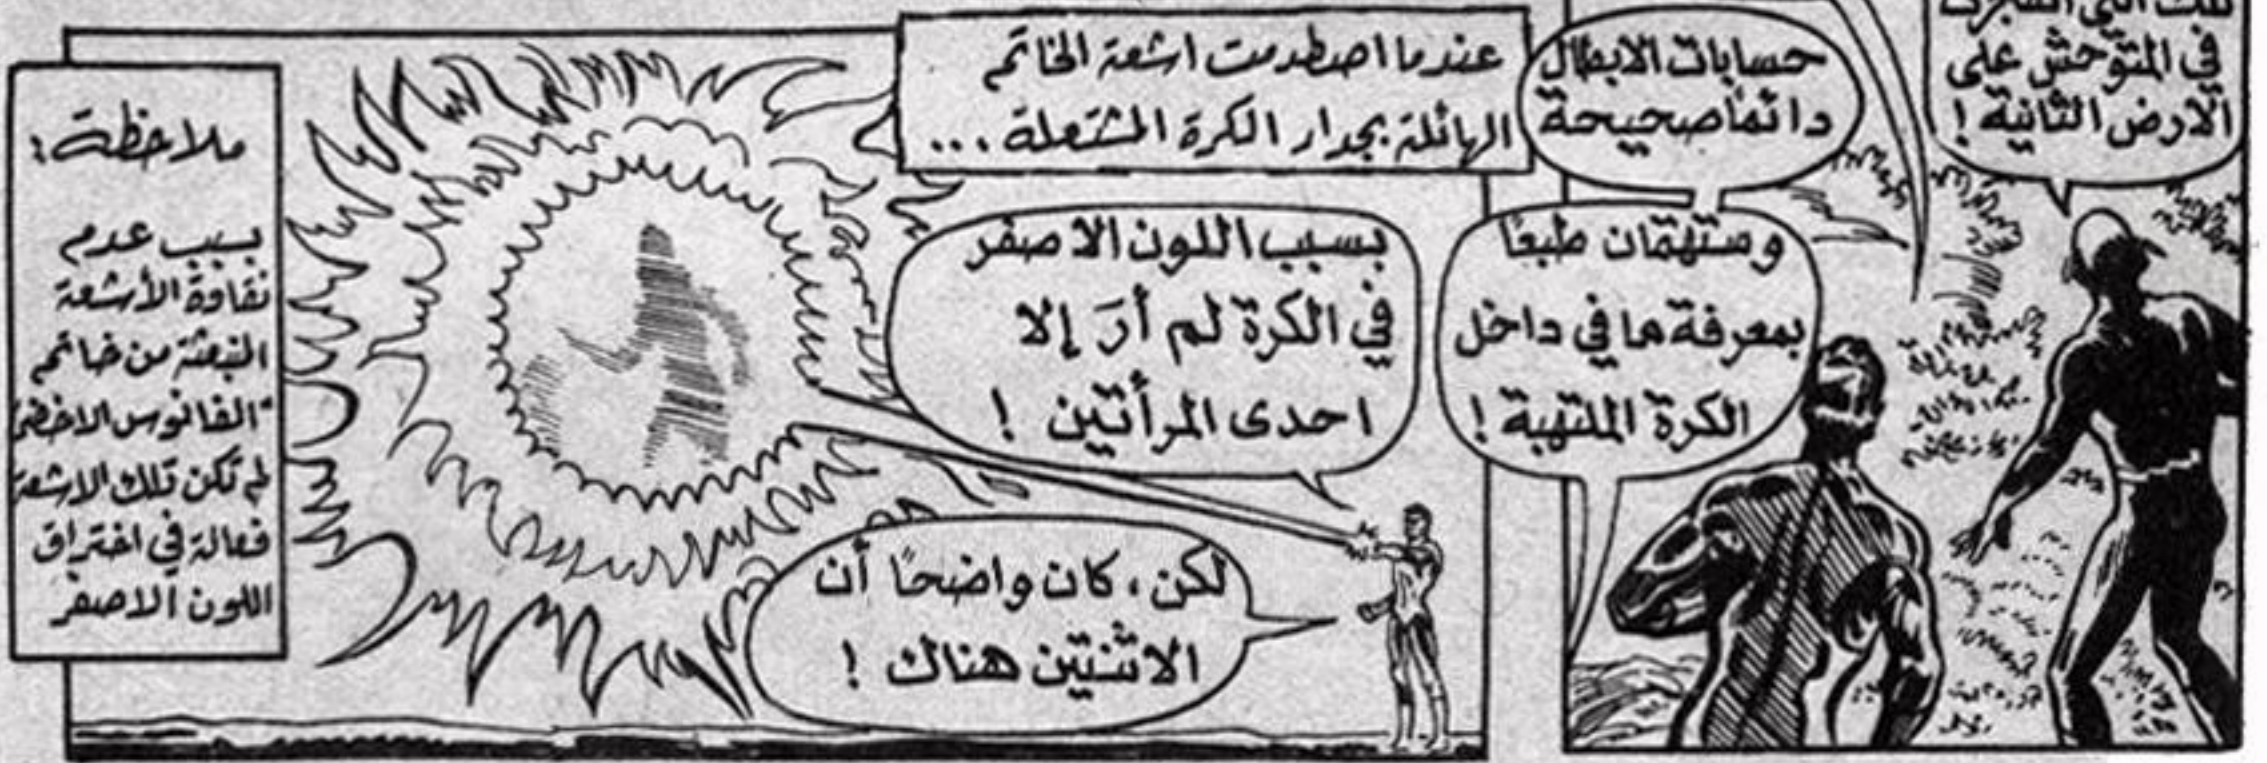 في المتوحش على
الارض الثانية !
حسابات الابطال
دائمًا صحيحة
وستهتمان طبعًا
بمعرفة ما في داخل
الكرة الملتهبة !
عندما اصطدمت اشعة الخاتم
الهائلة بجدار الكرة المشتعلة ...
بسبب اللون الاصفر
في الكرة لم أرَ إلا
احدى المرأتين !
لكن، كان واضحًا أن
الاثنتين هناك !
ملاحظة:
بسبب عدم
نقاوة الأشعة
المنبعثة من خاتم
"الفانوس الاخضر
لم تكن تلك الاشعة
فعالة في اختراق
اللون الاصفر